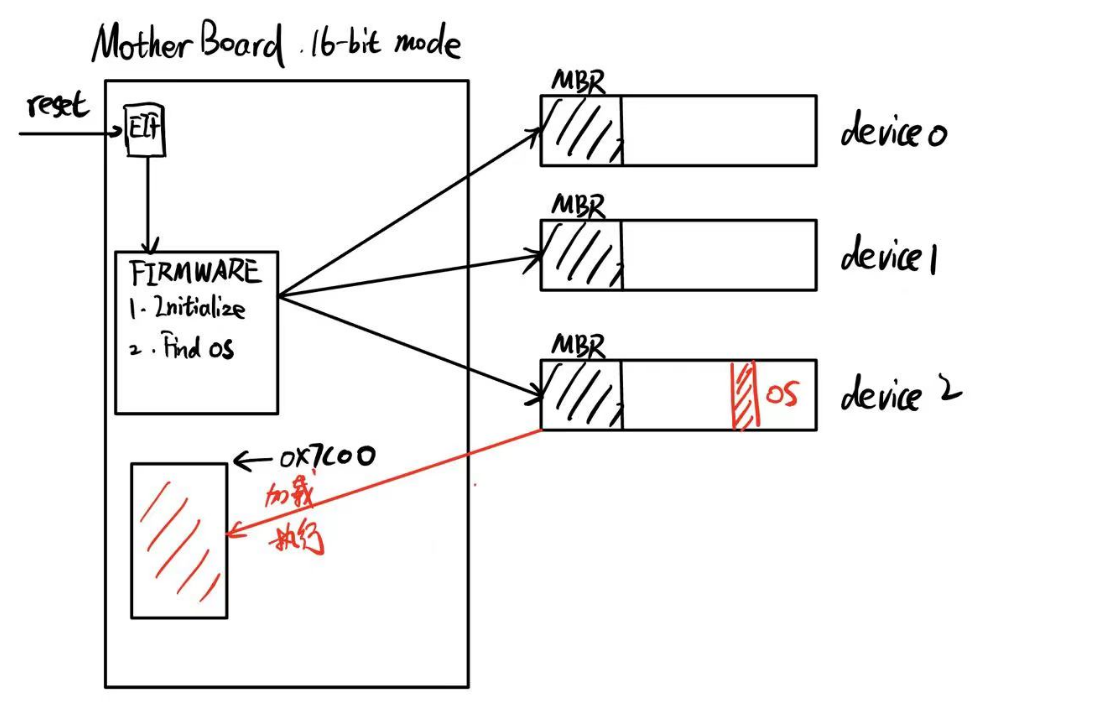 Mother Board . 16-bit mode
reset
FIRMWARE
1. Initialize
2. Find OS
0x7C00
加载
执行
MBR
device 0
MBR
device 1
MBR
OS
device 2